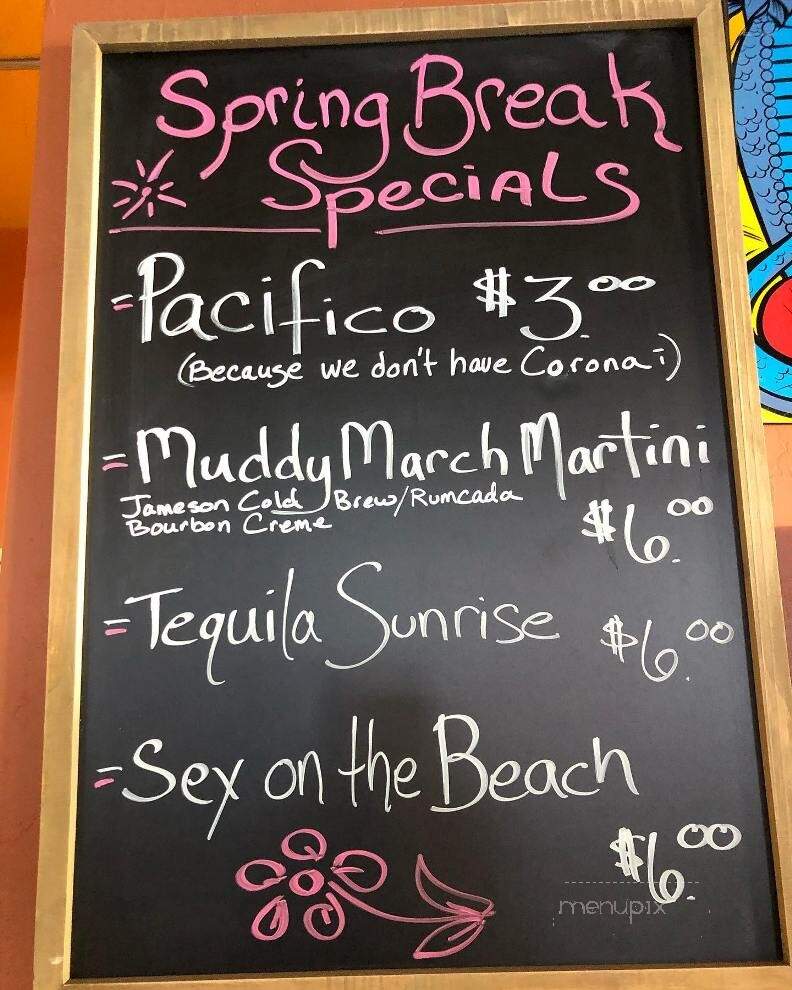 Spring Break
Specials
Pacifico $3.00
(Because we don't have Corona!)
Muddy March Martini
Jameson Cold Brew/Rumcada
Bourbon Creme
$6.00
Tequila Sunrise $6.00
Sex on the Beach
$6.00
menupix